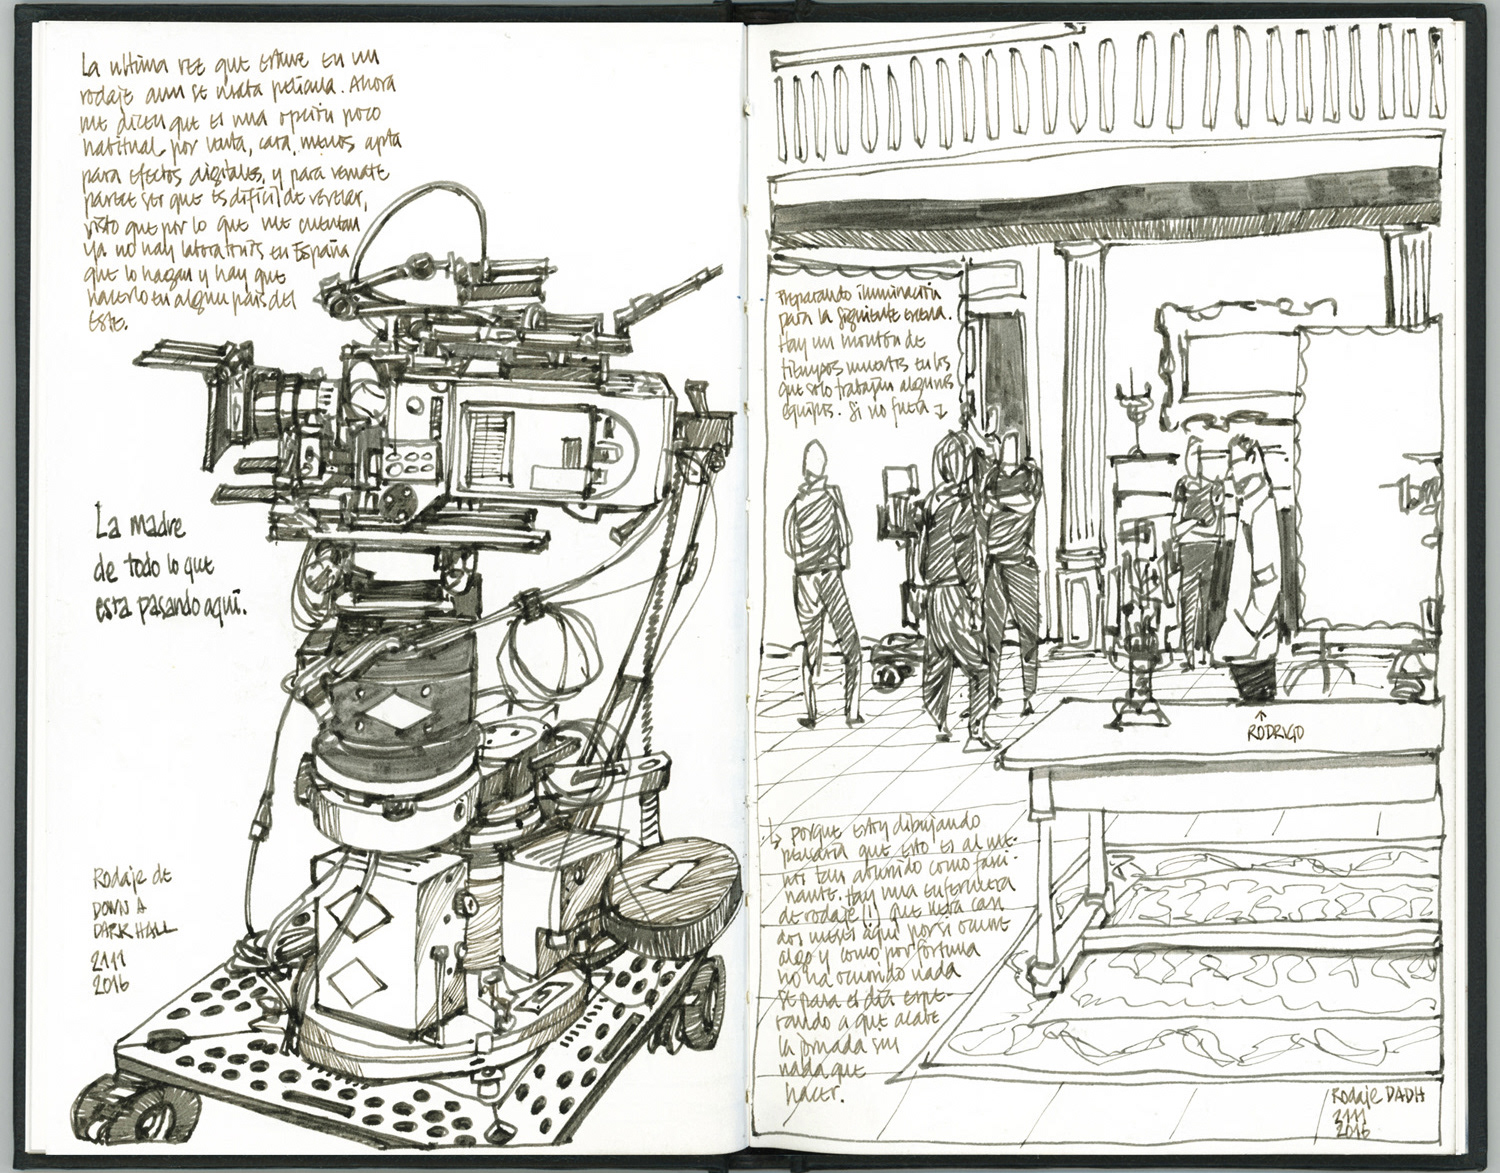 La ultima vez que estuve en un
rodaje aun se usaba película. Ahora
me dicen que es una opción poco
habitual, por lenta, cara, menos apta
para efectos digitales, y para remate
parece ser que es difícil de revelar,
visto que por lo que me cuentan
ya no hay laboratorios en España
que lo hagan y hay que
hacerlo en algun país del
Este.
La madre
de todo lo que
esta pasando aquí.
Rodaje de
DOWN A
DARK HALL
2111
2016
Preparando iluminación
para la siguiente escena.
Hay un montón de
tiempos muertos en los
que solo trabajan algunos
equipos. Si no fuera
RODRIGO
porque estoy dibujando
pensaría que esto es al me-
nos tan aburrido como fasci-
nante. Hay una enfermera
de rodaje (!) que lleva casi
dos meses aquí por si ocurre
algo y como por fortuna
no ha ocurrido nada
se pasa el día espe-
rando a que acabe
la jornada sin
nada que
hacer.
Rodaje DADH
2111
2016